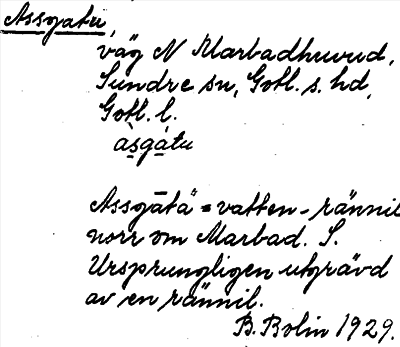 Assgatu,
väg N Marbadhuvud,
Sundre sn, Gotl. s. hd,
Gotl. l.
àsgátu
Assgātä = vatten-rännil
norr om Marbad. S.
Ursprungligen utgrävd
av en rännil.
B. Bolin 1929.